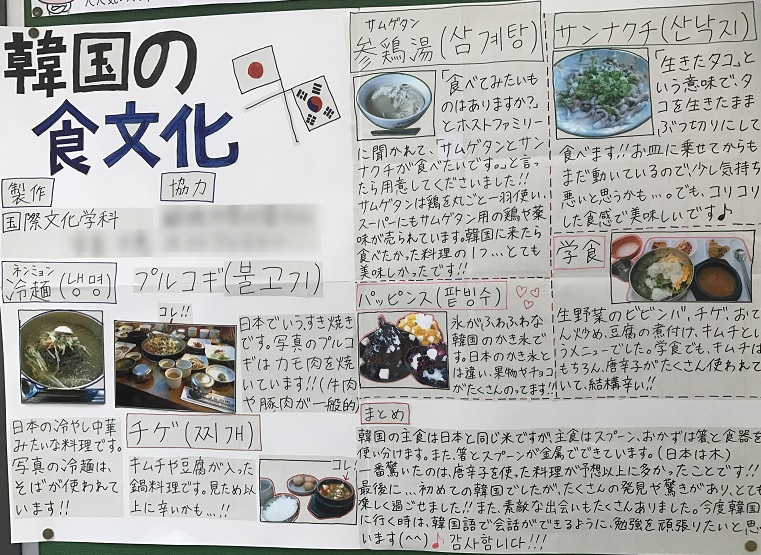 韓国の
食文化
製作
協力
国際文化学科
ネンミョン
冷麺(냉명)
日本の冷やし中華
みたいな料理です。
写真の冷麺は、
そばが使われて
います!!
プルコギ(불고기)
コレ!!
日本でいう、すき焼き
です。写真のプルコ
ギはカモ肉を焼
いています!!(牛肉
や豚肉が一般的)
チゲ(찌개)
キムチや豆腐が入った
鍋料理です。見ため以
上に辛いかも…!!
コレ!
サムゲタン
参鶏湯(삼계탕)
「食べてみたいも
のはありますか?」
とホストファミリー
に聞かれて、「サムゲタンとサン
ナクチが食べたいです。」と言っ
たら用意してくださいました!!
サムゲタンは鶏を丸ごと一羽使い、
スーパーにもサムゲタン用の鶏や薬
味が売られています。韓国に来たら
食べたかった料理の1つ…とても
美味しかったです!!
サンナクチ(산낙지)
「生きたタコ」と
いう意味で、タ
コを生きたまま
ぶつ切りにして
食べます!!お皿に乗せてからも
まだ動いているので、少し気持ち
悪いと思うかも…。でも、コリコリ
した食感で美味しいです♪
学食
生野菜のビビンバ、チゲ、おで
ん炒め、豆腐の煮付け、キムチとい
うメニューでした。学食でも、キムチは
もちろん、唐辛子がたくさん使われて
いて、結構辛い!!
パッピンス(팥빙수)
氷がふわふわな
韓国のかき氷で
す。日本のかき氷と
は違い、果物やチョコ
がたくさんのってます!!
まとめ
韓国の主食は日本と同じ米ですが、主食はスプーン、おかずは箸と食器を
使い分けます。また、箸とスプーンが金属でできています。(日本は木)
一番驚いたのは、唐辛子を使った料理が予想以上に多かったことです!!
最後に…初めての韓国でしたが、たくさんの発見や驚きがあり、とても
楽しく過ごせました!!また、素敵な出会いもたくさんありました。今度韓国
に行く時は、韓国語で会話ができるように、勉強を頑張りたいと思
います(^^)♪감사합니다!!!